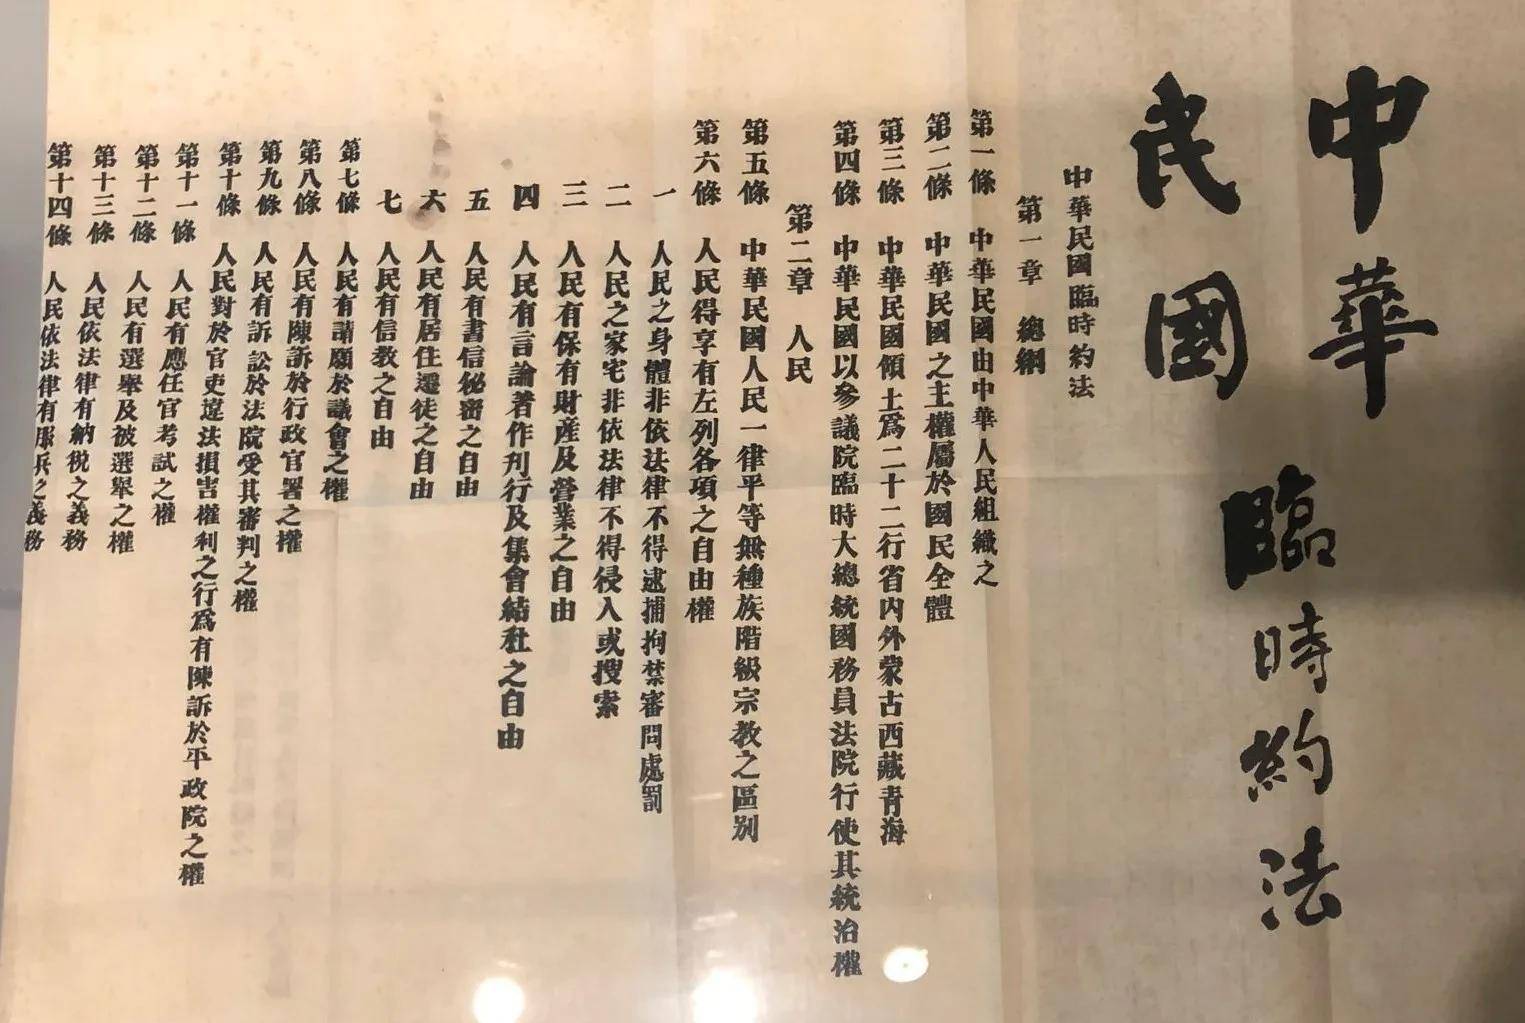 中華
民國
臨時約法
中華民國臨時約法
第一章　總綱
第一條　中華民國由中華人民組織之
第二條　中華民國之主權屬於國民全體
第三條　中華民國領土爲二十二行省內外蒙古西藏青海
第四條　中華民國以參議院臨時大總統國務員法院行使其統治權
第二章　人民
第五條　中華民國人民一律平等無種族階級宗教之區別
第六條　人民得享有左列各項之自由權
一　人民之身體非依法律不得逮捕拘禁審問處罰
二　人民之家宅非依法律不得侵入或搜索
三　人民有保有財產及營業之自由
四　人民有言論著作刋行及集會結社之自由
五　人民有書信秘密之自由
六　人民有居住遷徙之自由
七　人民有信教之自由
第七條　人民有請願於議會之權
第八條　人民有陳訴於行政官署之權
第九條　人民有訴訟於法院受其審判之權
第十條　人民對於官吏違法損害權利之行爲有陳訴於平政院之權
第十一條　人民有應任官考試之權
第十二條　人民有選舉及被選舉之權
第十三條　人民依法律有納稅之義務
第十四條　人民依法律有服兵之義務